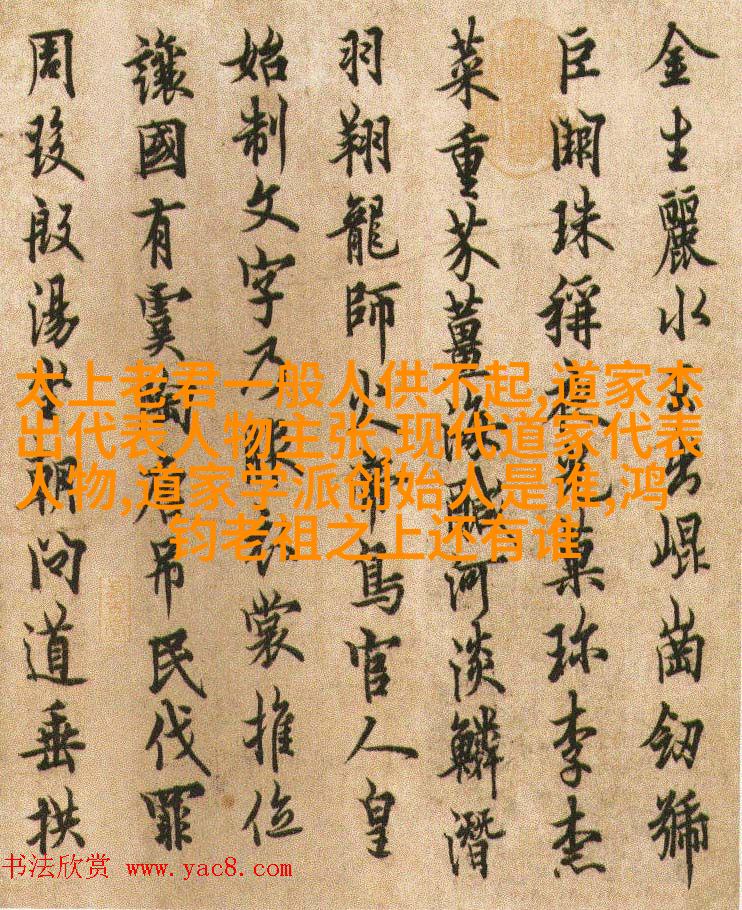 金生麗水玉出崐崗劒號
巨闕珠稱夜光菓珎李柰
菜重芥薑海醎河淡鱗潛
羽翔龍師火帝鳥官人皇
始制文字乃服衣裳推位
讓國有虞陶唐吊民伐罪
周發殷湯坐朝問道垂拱
太上老君一般人供不起,道家杰
出代表人物主张,现代道家代表
人物,道家学派创始人是谁,鸿
钧老祖之上还有谁
书法欣赏 www.yac8.com